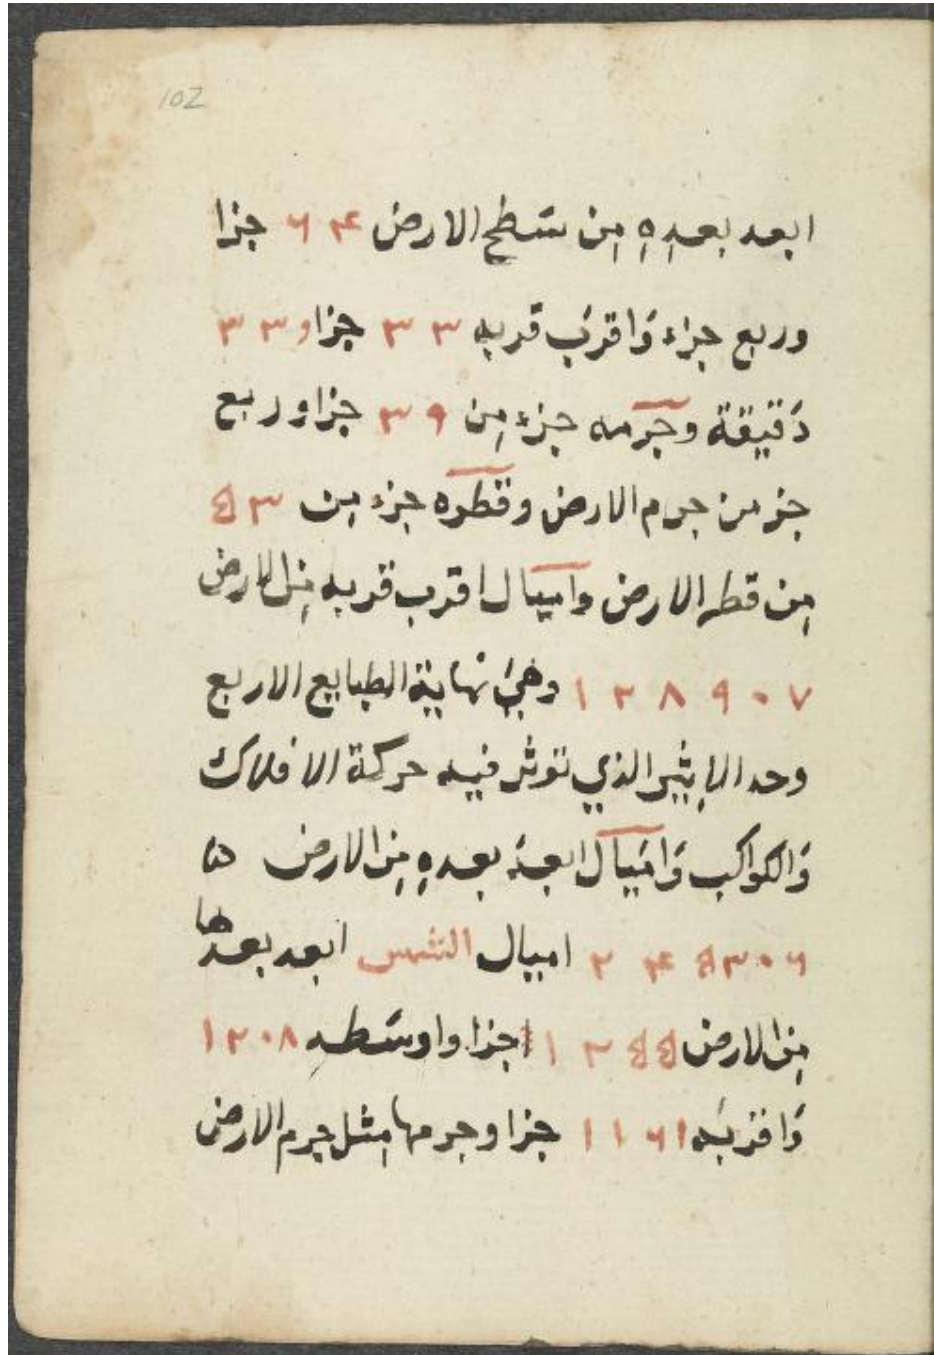 102
ابعد بعده من سطح الارض ۶۴ جزا
وربع جزء وَاقرَب قربه ٣٣ جزا و٣٣
دَقيقة وجرمه جزء من ٣٩ جزا وربع
جز من جرم الارض وقطره جزء من
من قطر الارض واميال اقرب قربه من الارض
وهي نهاية الطبايع الاربع
وحد الاثير الذي توثر فيه حركة الافلاك
وَالكواكب وَاميال ابعد بعده من الارض
اميال الشمس ابعد بعدها
من الارض جزا واوسَطه ١٢٠٨
وَاقربه ١١٦١ جزا وجرمها مثل جرم الارض